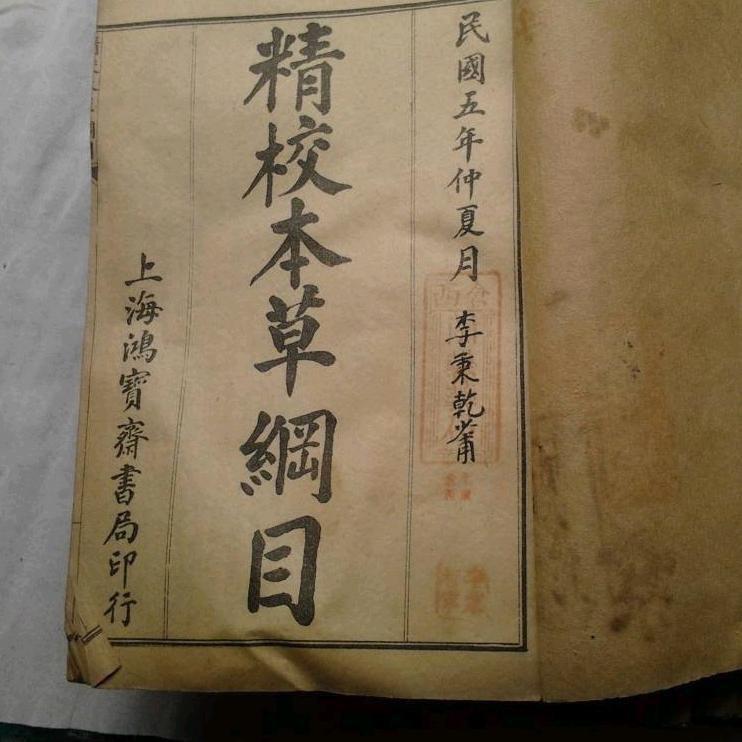 民國五年仲夏月 李秉乾署
精校本草綱目
上海鴻寶齋書局印行